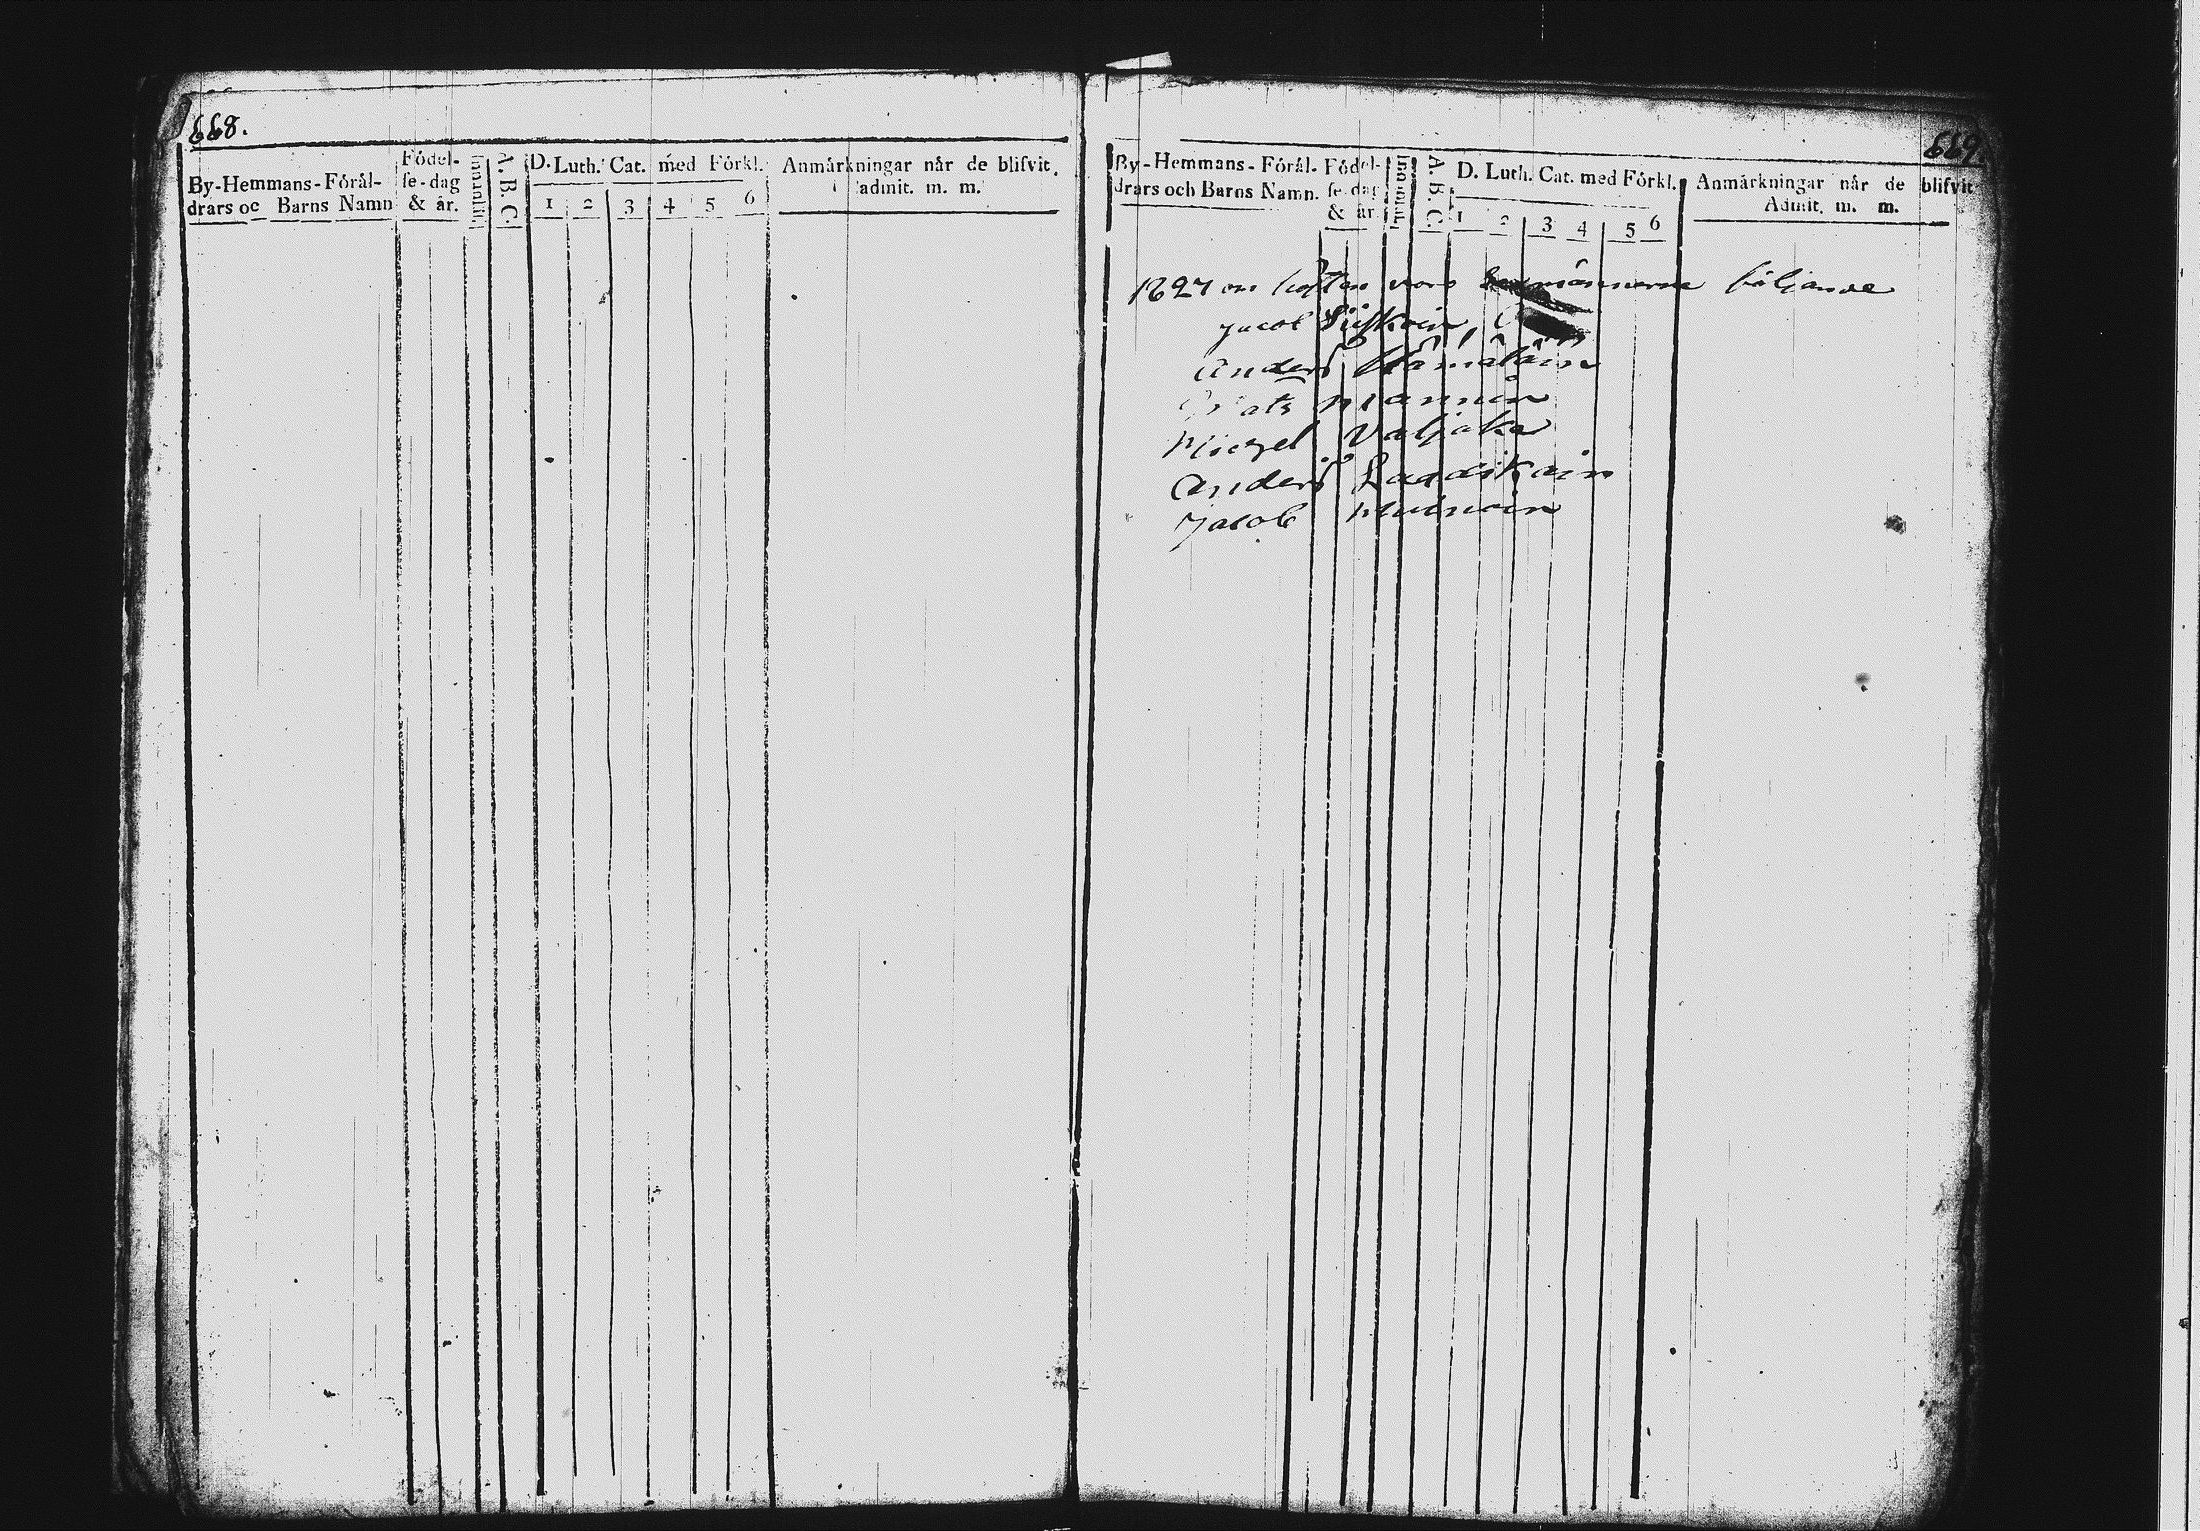 668.
By-Hemmans-Förål-
drars oc Barns Namn
Födel-
se-dag
& år.
Innanläs
A. B. C.
D. Luth. Cat. med Förkl.
1 2 3 4 5 6
Anmårkningar når de blifvit
admit. m. m.
669.
By-Hemmans-Förål-
drars och Barns Namn.
Födel-
se-dag
& år
A. B. C.
D. Luth. Cat. med Förkl.
1 2 3 4 5 6
Anmårkningar når de blifvit
Admit. m. m.
1827 om hösten voro männerne följande
Jacob
Anders Hämäläin
Mats Mannin
Michel Valjaka
Anders Laadikain
Jacob Muinoin